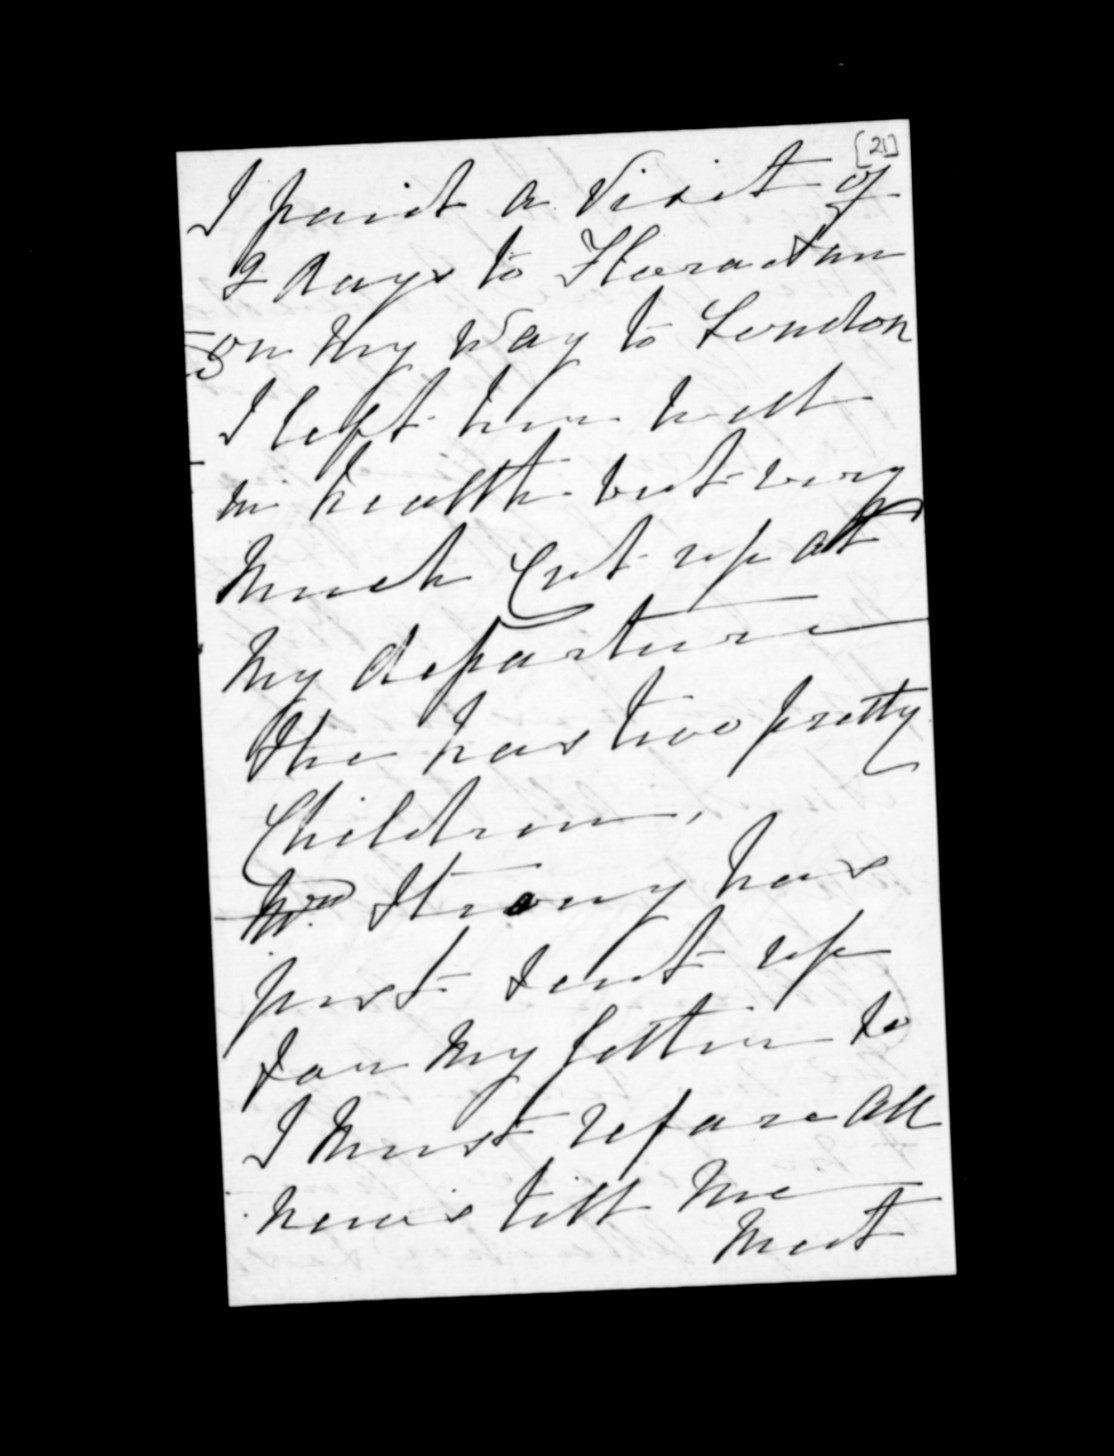 [21]
I paid a Visit of
2 days to
on my way to London
I left her well
in health but very
much Cut up at
my departure
She has two pretty
Children,
Mrs Strong has
just sent up
for my letter so
I must refare all
news till we
meet